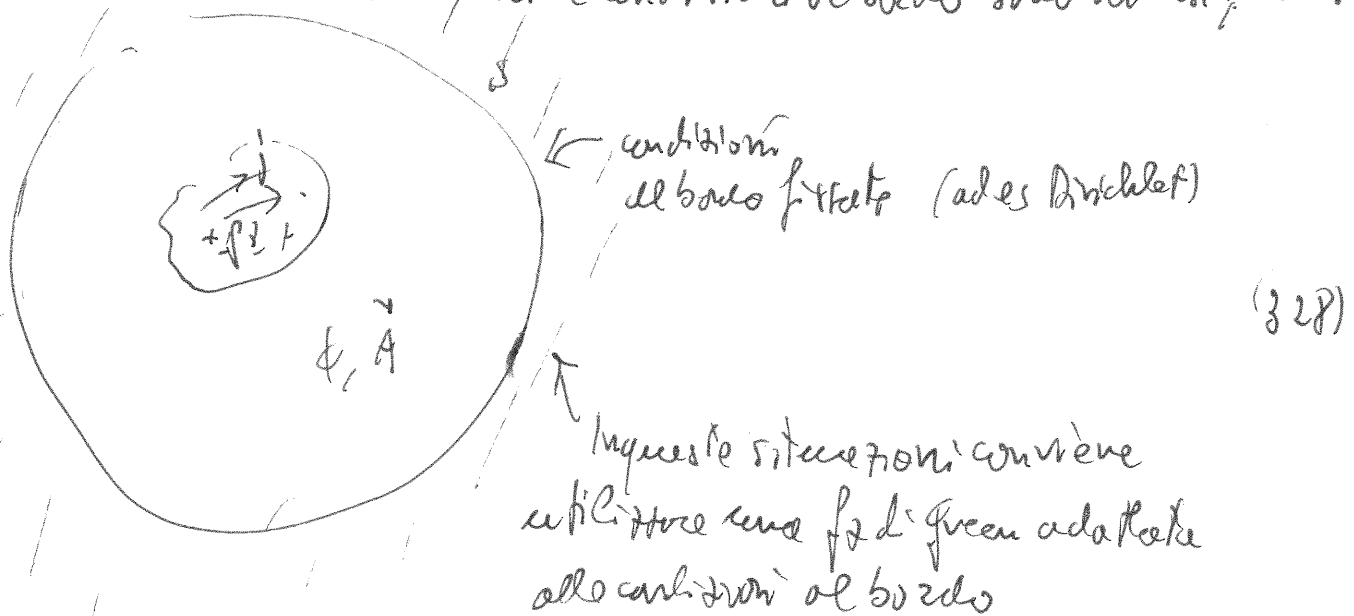 S
condizioni
al bordo fissate (ad es Dirichlet)
(328)
ϕ, A
In queste situazioni conviene
utilizzare una fz di Green adattata
alle condizioni al bordo